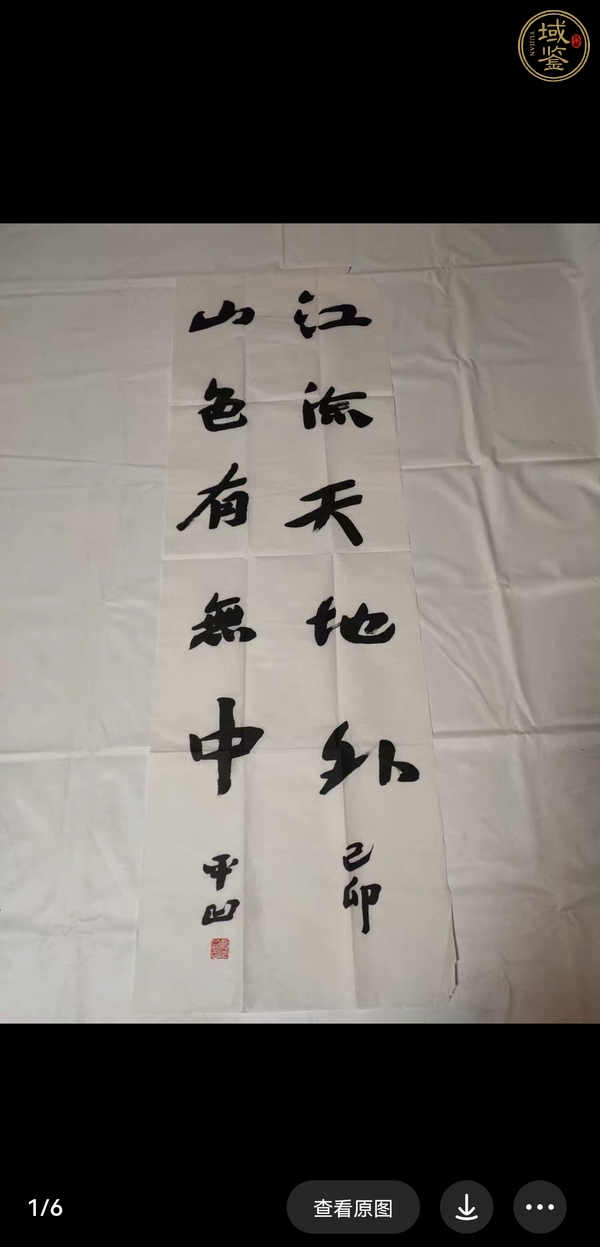 域鉴
YUJIAN
江流天地外 己卯
山色有無中 平凹
1/6
查看原图